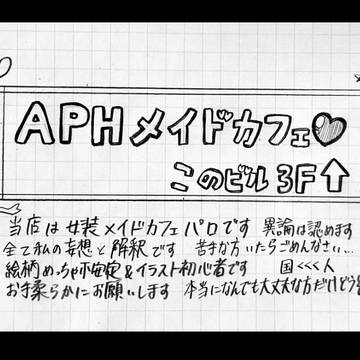 APHメイドカフェ♥
このビル3F↑
当店は女装メイドカフェパロです 異論は認めます
全て私の妄想と解釈です 苦手な方いたらごめんなさい...
絵柄めっちゃ不安定&イラスト初心者です 国<<<人
お手柔らかにお願いします 本当になんでも大丈夫な方だけどうぞ